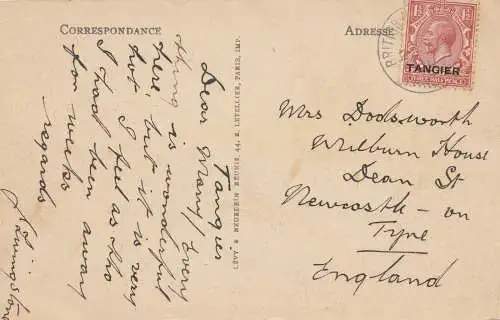 CORRESPONDANCE
Tangier
Dear Mary, Every
thing is wonderful
here, but it is very
hot I feel as tho
I had been away
for weeks
regards
Livingstone
LÉVY & NEURDEIN RÉUNIS, 44, R. LETELLIER, PARIS, IMP.
ADRESSE
BRITISH
TANGIER
THREE HALF PENCE
Mrs Dodsworth
Milburn House
Dean St
Newcastle-on
Tyne
England